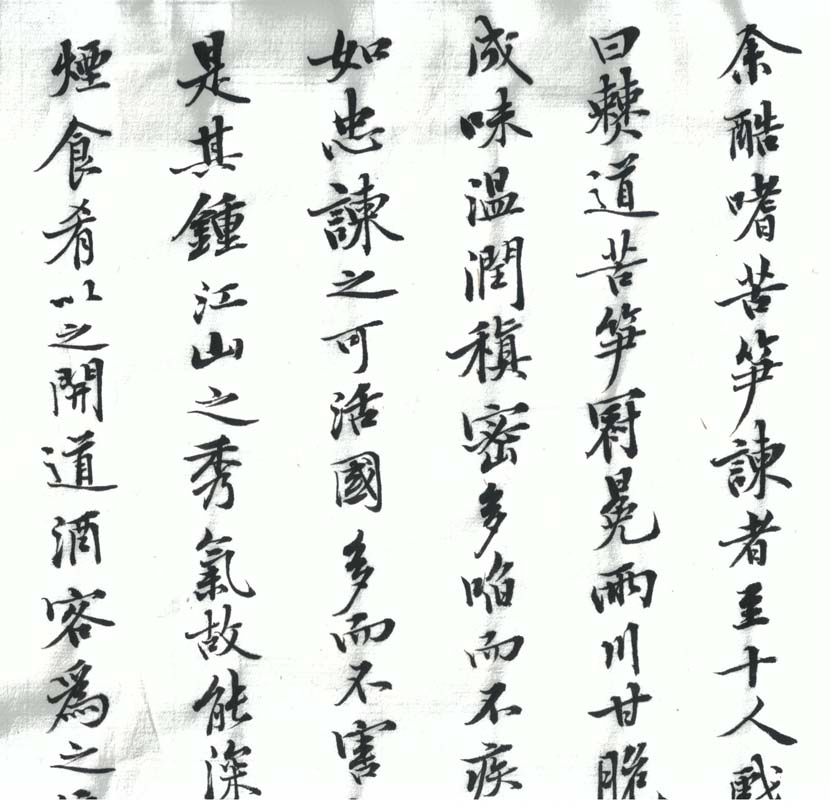 余酷嗜苦笋諫者至十人戲
曰僰道苦笋冠冕兩川甘脆
成味温潤稹密多啗而不疾
如忠諫之可活國多而不害
是其鍾江山之秀氣故能深
煙食肴以之開道酒客爲之